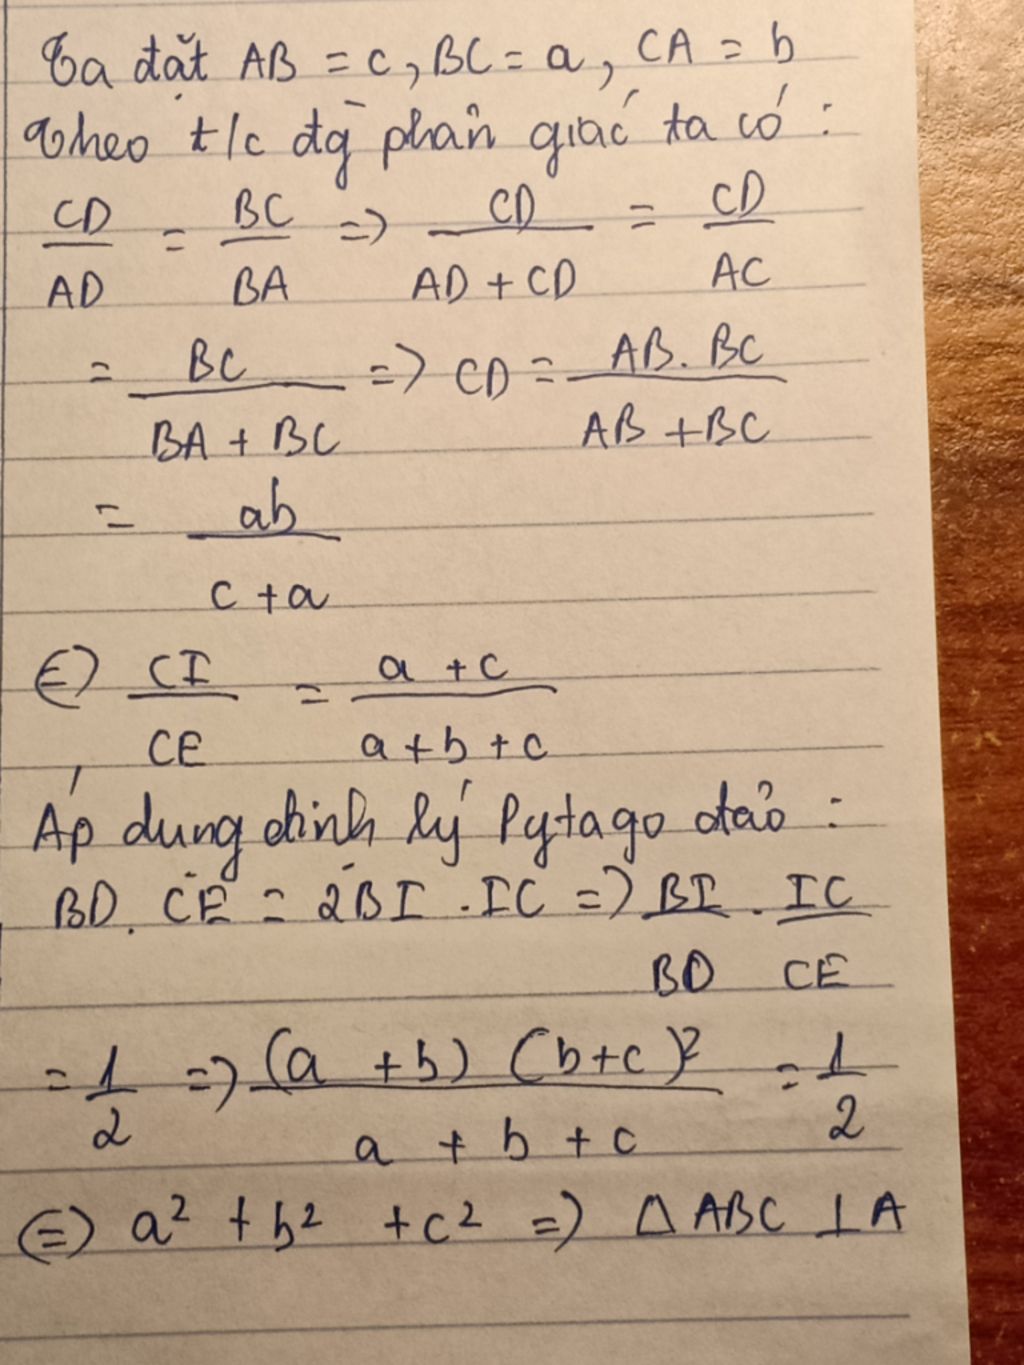 Ta đặt AB = c, BC = a, CA = b
Theo t/c đg phân giác ta có :
CD/AD = BC/BA => CD/(AD + CD) = CD/AC
= BC/(BA + BC) => CD = AB.BC/(AB + BC)
= ab/(c + a)
(=) CI/CE = (a + c)/(a + b + c)
Áp dụng định lý Pytago đảo :
BD. CE = 2BI . IC => BI/BD . IC/CE
= 1/2 => (a + b) (b + c)²/(a + b + c) = 1/2
(=) a² + b² + c² => Δ ABC ⊥ A